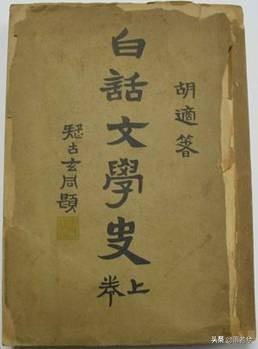 胡適著
白話文學史
上卷
疑古玄同題
头条